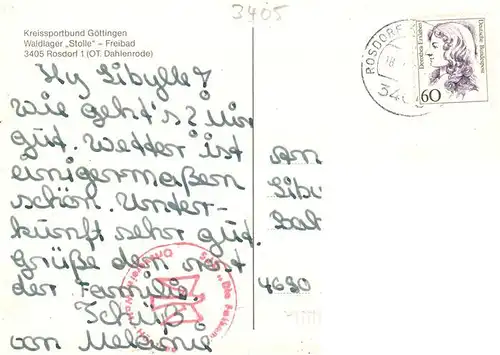 3405
Kreissportbund Göttingen
Waldlager „Stolle“ – Freibad
3405 Rosdorf 1 (OT. Dahlenrode)
Hy Sibylle!
Wie geht's? Mir
gut. Wetter ist
einigermaßen
schön. Unter-
kunft sehr gut.
Grüße den rest
der Familie.
Tschüß
von Melanie
An
Sibi
4690
ROSDORF
18
Deutsche Bundespost
60
SJD „Die Falken